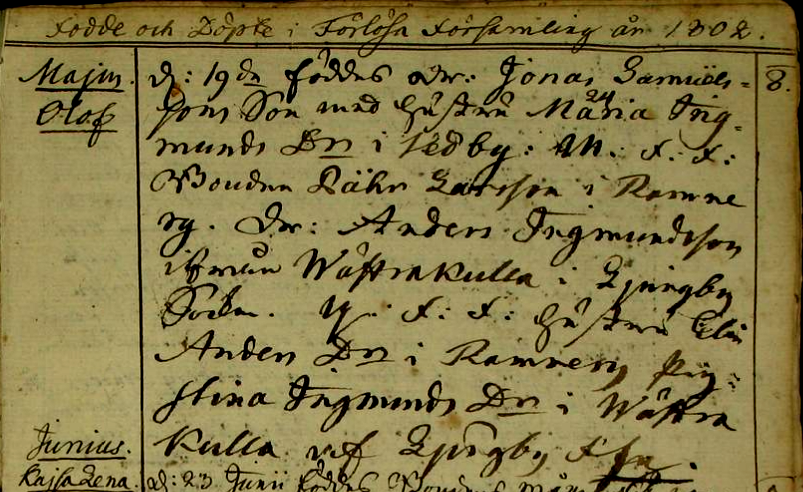 Födde och Döpte i Förlösa Församling år 1802.
Majus. d: 19de föddes Dr: Jonas Samuels= 8.
Olof sons Son med hustru Maria Ing= 24
munds Dr i Tedby: M. F. F:
Bonden Pähr Larsson i Ramne
rg. Dr: Anders Ingmundsson
ifrån Wästrakulla i Ljungby
Sockn. Q. F. F: hustru Elin
Anders Dr i Ramnerg, Pig=
Stina Ingmunds Dr i Wästra
Junius. Kulla uti Ljungby
Kajsa Lena. d: 23 Junii föddes Bondens